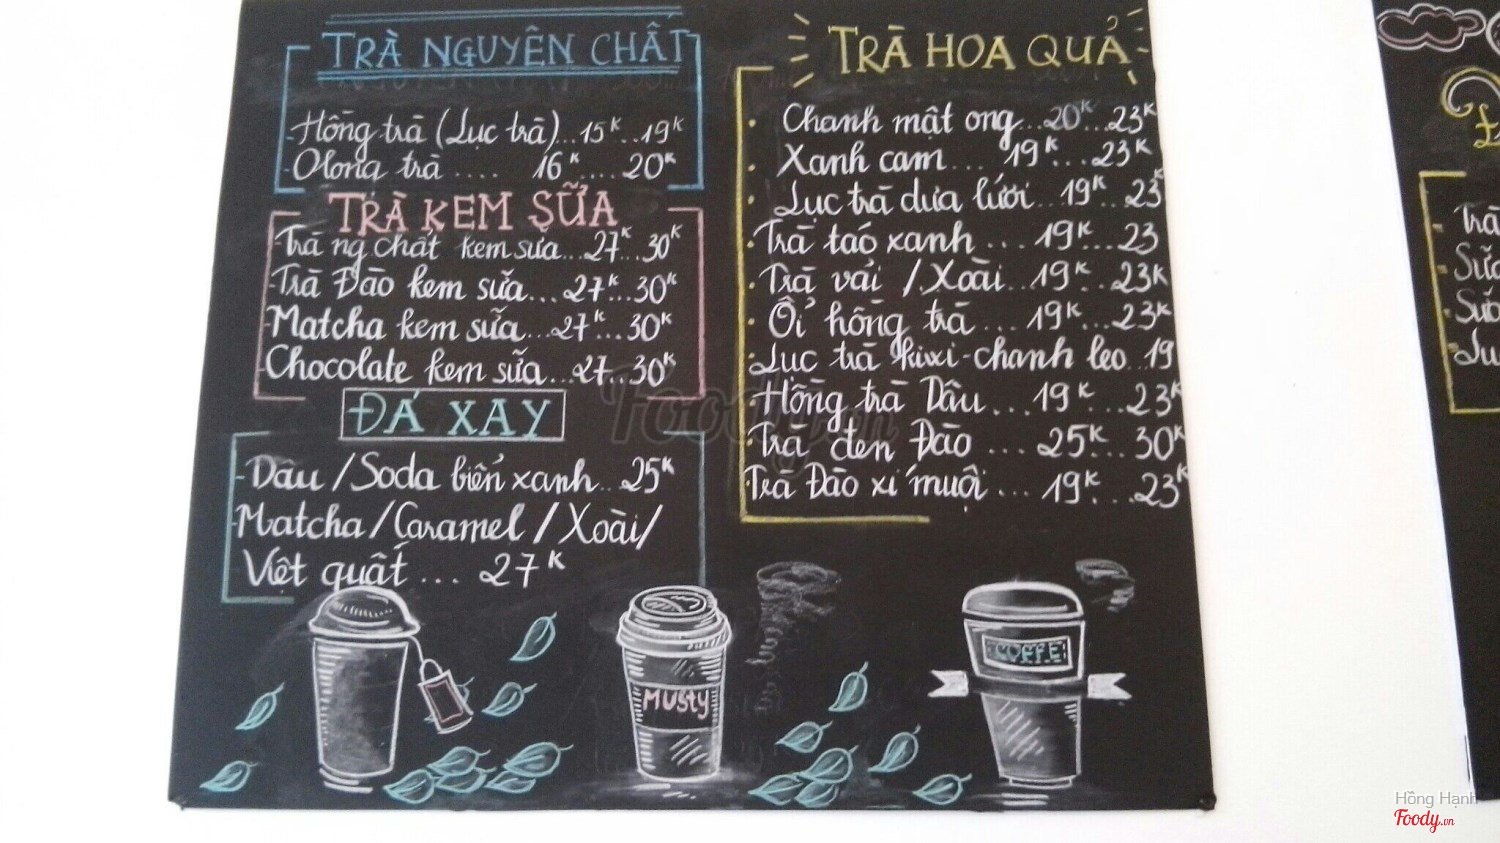 TRÀ NGUYÊN CHẤT
- Hồng trà (Lục trà)...15K...19K
- Olong trà .... 16K.... 20K
TRÀ KEM SỮA
- Trà ng chất kem sữa...27K...30K
- Trà Đào kem sữa...27K...30K
- Matcha kem sữa...27K...30K
- Chocolate kem sữa...27...30K
ĐÁ XAY
- Dâu/Soda biển xanh...25K
- Matcha/Caramel/Xoài/
Việt quất... 27K
TRÀ HOA QUẢ
. Chanh mật ong...20K...23K
. Xanh cam... 19K...23K
. Lục trà dưa lưới..19K..23K
. Trà táo xanh...19K...23
. Trà vải/Xoài..19K..23K
. Ổi hồng trà...19K...23K
. Lục trà kiwi-chanh leo..19
. Hồng trà Dâu...19K...23K
. Trà đen Đào...25K...30K
. Trà Đào xí muội...19K...23K
Musty
COFFE
Foody.vn
Hồng Hạnh
Foody.vn